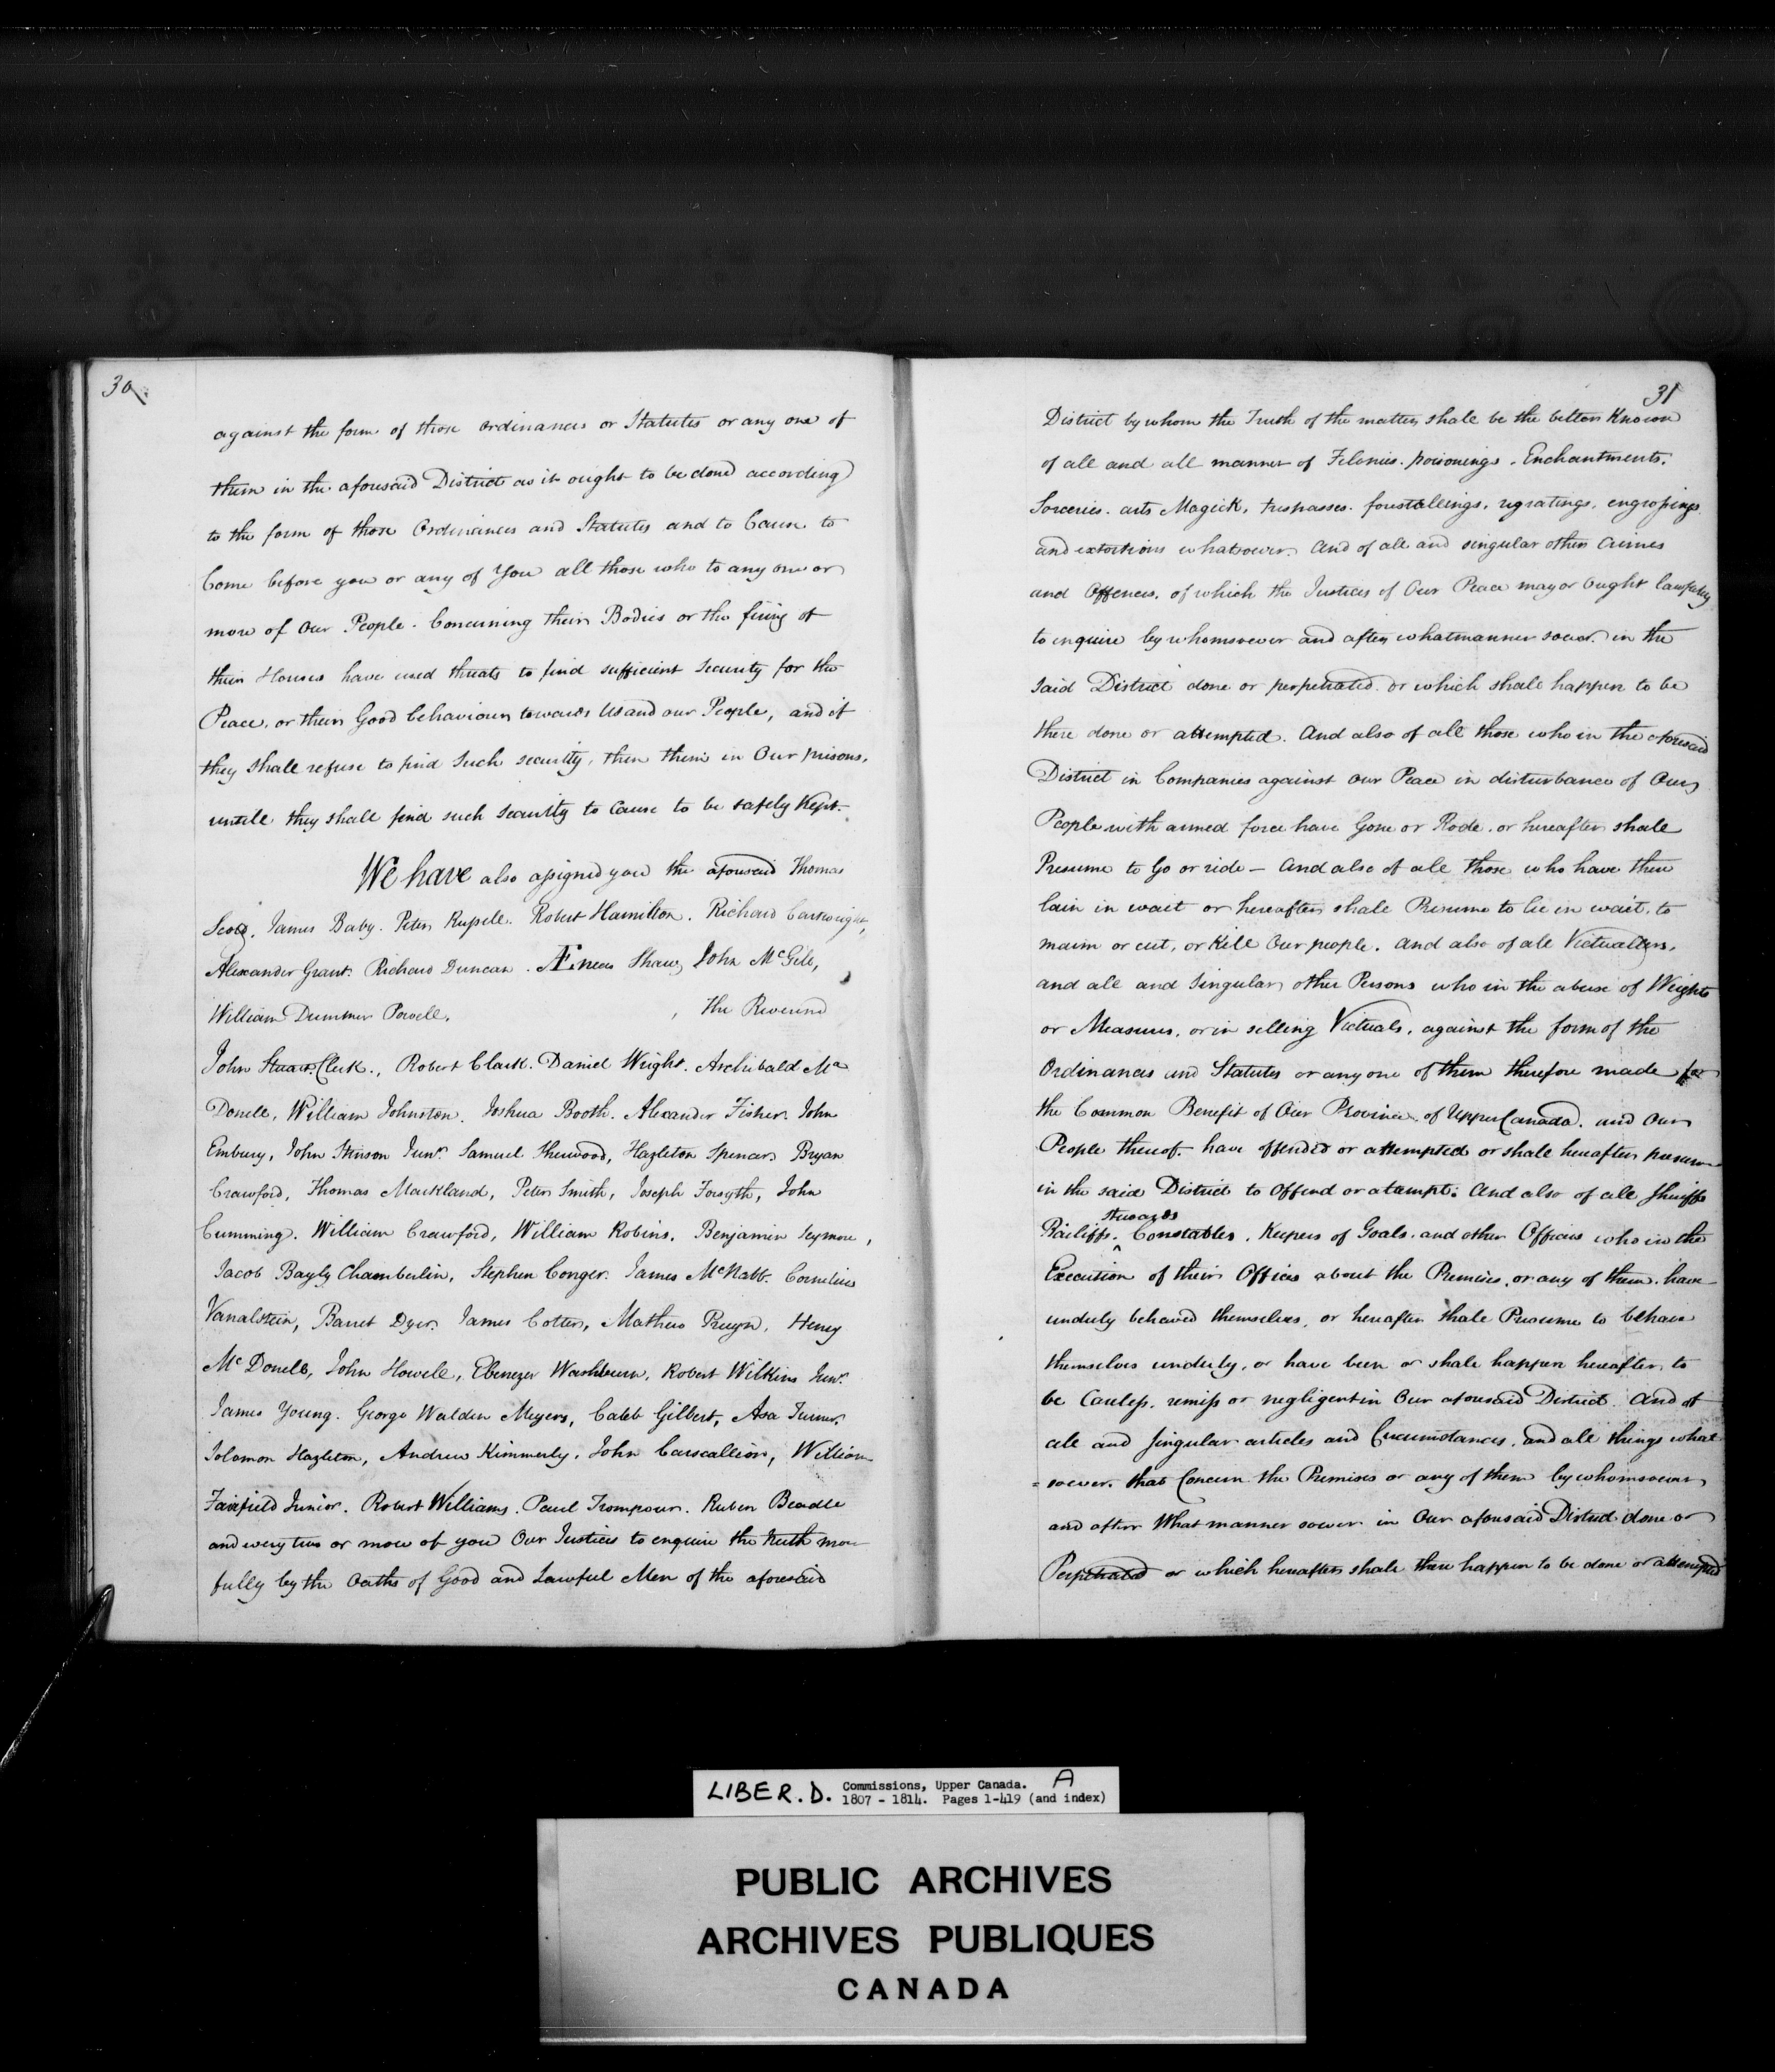 30.
against the form of those ordinances or Statutes or any one of
them in the aforesaid District as it ought to be done according
to the form of those Ordinances and Statutes and to Cause to
Come before you or any of You all those who to any one or
more of Our People Concerning their Bodies or the firing of
their Houses have used threats to find sufficient Security for the
Peace, or their Good behaviour towards Us and our People, and if
they shall refuse to find Such security, then them in Our prisons,
untill they shall find such Security to Cause to be safely Kept.
We have also assigned you the aforesaid Thomas
Scott, James Baby. Peter Russell. Robert Hamilton. Richard Cartwright,
Alexander Grant. Richard Duncan. Æneas Shaw, John McGill,
William Dummer Powell, , The Reverend
John Stuart Clerk., Robert Clark. Daniel Wright. Archibald Mc
Donell, William Johnston. Joshua Booth. Alexander Fisher. John
Embury, John Stinson Junr. Samuel Sherwood, Hazleton Spencer. Bryan
Crawford, Thomas Markland, Peter Smith, Joseph Forsyth, John
Cumming. William Crawford, William Robins. Benjamin Seymour,
Jacob Bayly Chamberlin, Stephen Conger. James McNabb. Cornelius
Vanalstein, Barret Dyer. James Cotter, Mathew Pruyn, Henry
McDonell, John Howell, Ebenezer Washburn, Robert Wilkins Junr.
James Young. George Walden Meyers, Caleb Gilbert, Asa Turner,
Solomon Hazleton, Andrew Kimmerly, John Carscallion, William
Fairfield Junior. Robert Williams. Paul Trompour. Ruben Beadle
and every two or more of you Our Justices to enquire the truth more
fully by the Oaths of Good and Lawful Men of the aforesaid
31
District by whom the Truth of the matter shall be the better Known
of all and all manner of Felonies. poisonings. Enchantments.
Sorceries. arts Magick, trespasses. forestallings, regratings, engrossings
and extortions whatsoever. And of all and singular other Crimes
and Offences, of which the Justices of Our Peace may or Ought lawfully
to enquire by whomsoever and after whatmanner soever. in the
said District done or perpetrated. or which shall happen to be
there done or attempted. And also of all those who in the aforesaid
District in Companies against our Peace in disturbance of Our
People with armed force have Gone or Rode, or hereafter shall
Presume to Go or ride - And also of all those who have there
lain in wait or hereafter shall Presume to lie in wait, to
maim or cut, or Kill Our people. And also of all Victuallers,
and all and Singular other Persons who in the abuse of Weights
or Measures, or in selling Victuals, against the form of the
Ordinances and Statutes or any one of them therefore made for
the Common Benefit of Our Province of Upper Canada. and Our
People thereof. have offended or attempted or shall hereafter presume
in the said District to Offend or atempt: And also of all Sheriffs
stewards
Bailiffs. ^ Constables, Keepers of Goals. and other Officers who in the
Execution of their Offices about the Premises, or any of them, have
unduly behaved themselves, or hereafter shall Presume to behave
themselves unduly, or have been or shall happen hereafter, to
be Careless, remiss or negligent in Our aforesaid District. And of
all and Singular articles and Circumstances, and all things what
= soever. that Concern the Premises or any of them by whomsoever
and after What manner soever in Our aforesaid District done or
Perpetrated or which hereafter shall there happen to be done or attempted
LIBER. D. Commissions, Upper Canada. A
1807 - 1814. Pages 1-419 (and index)
PUBLIC ARCHIVES
ARCHIVES PUBLIQUES
CANADA